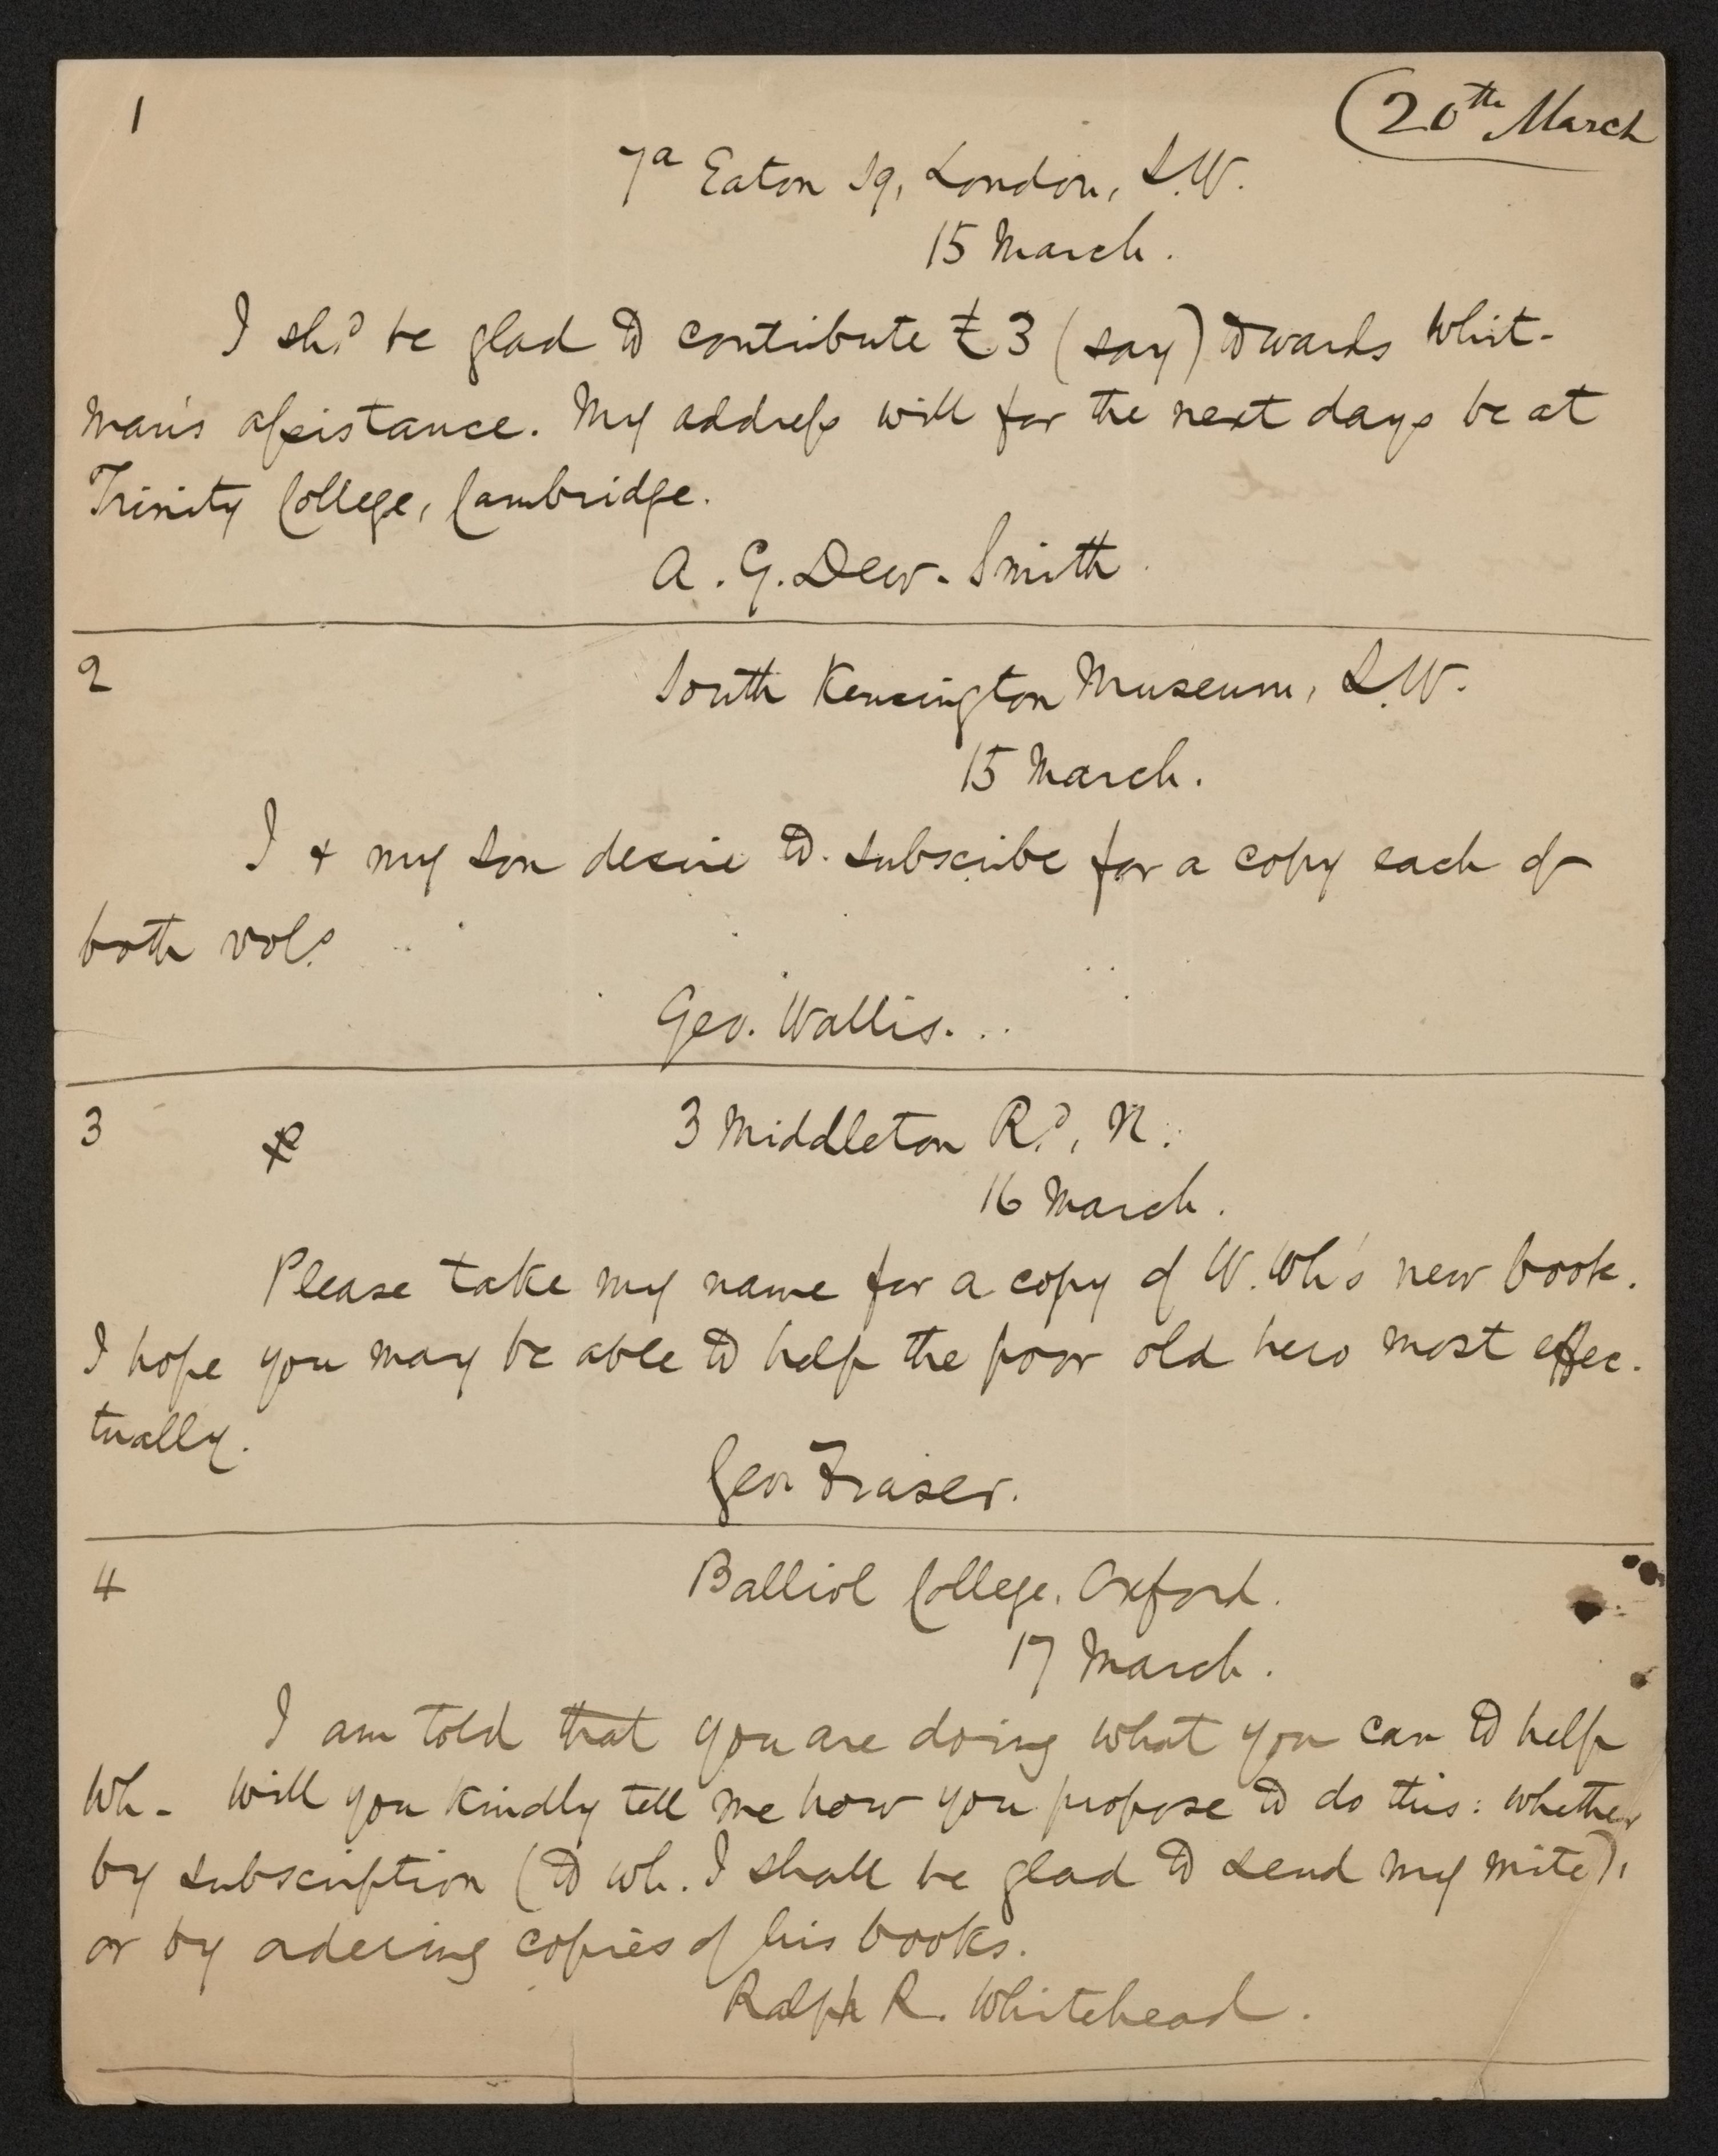 1
(20th March
7a Eaton Sq, London, S.W.
15 March.
I shd be glad to contribute £3 (say) towards Whit-
man's assistance. My address will for the next days be at
Trinity College, Cambridge.
A. G. Dew-Smith
2
South Kensington Museum, S.W.
15 March.
I + my son desire to subscribe for a copy each of
both vols
Geo. Wallis.
3
3 Middleton Rd, N.
16 March.
Please take my name for a copy of W. Wh's new book.
I hope you may be able to help the poor old hero most effec-
tually.
Geo Fraser.
4
Balliol College, Oxford.
17 March.
I am told that you are doing what you can to help
Wh- Will you kindly tell me how you propose to do this: whether
by subscription (to wh. I shall be glad to send my mite),
or by ordering copies of his books.
Ralph R. Whitehead.